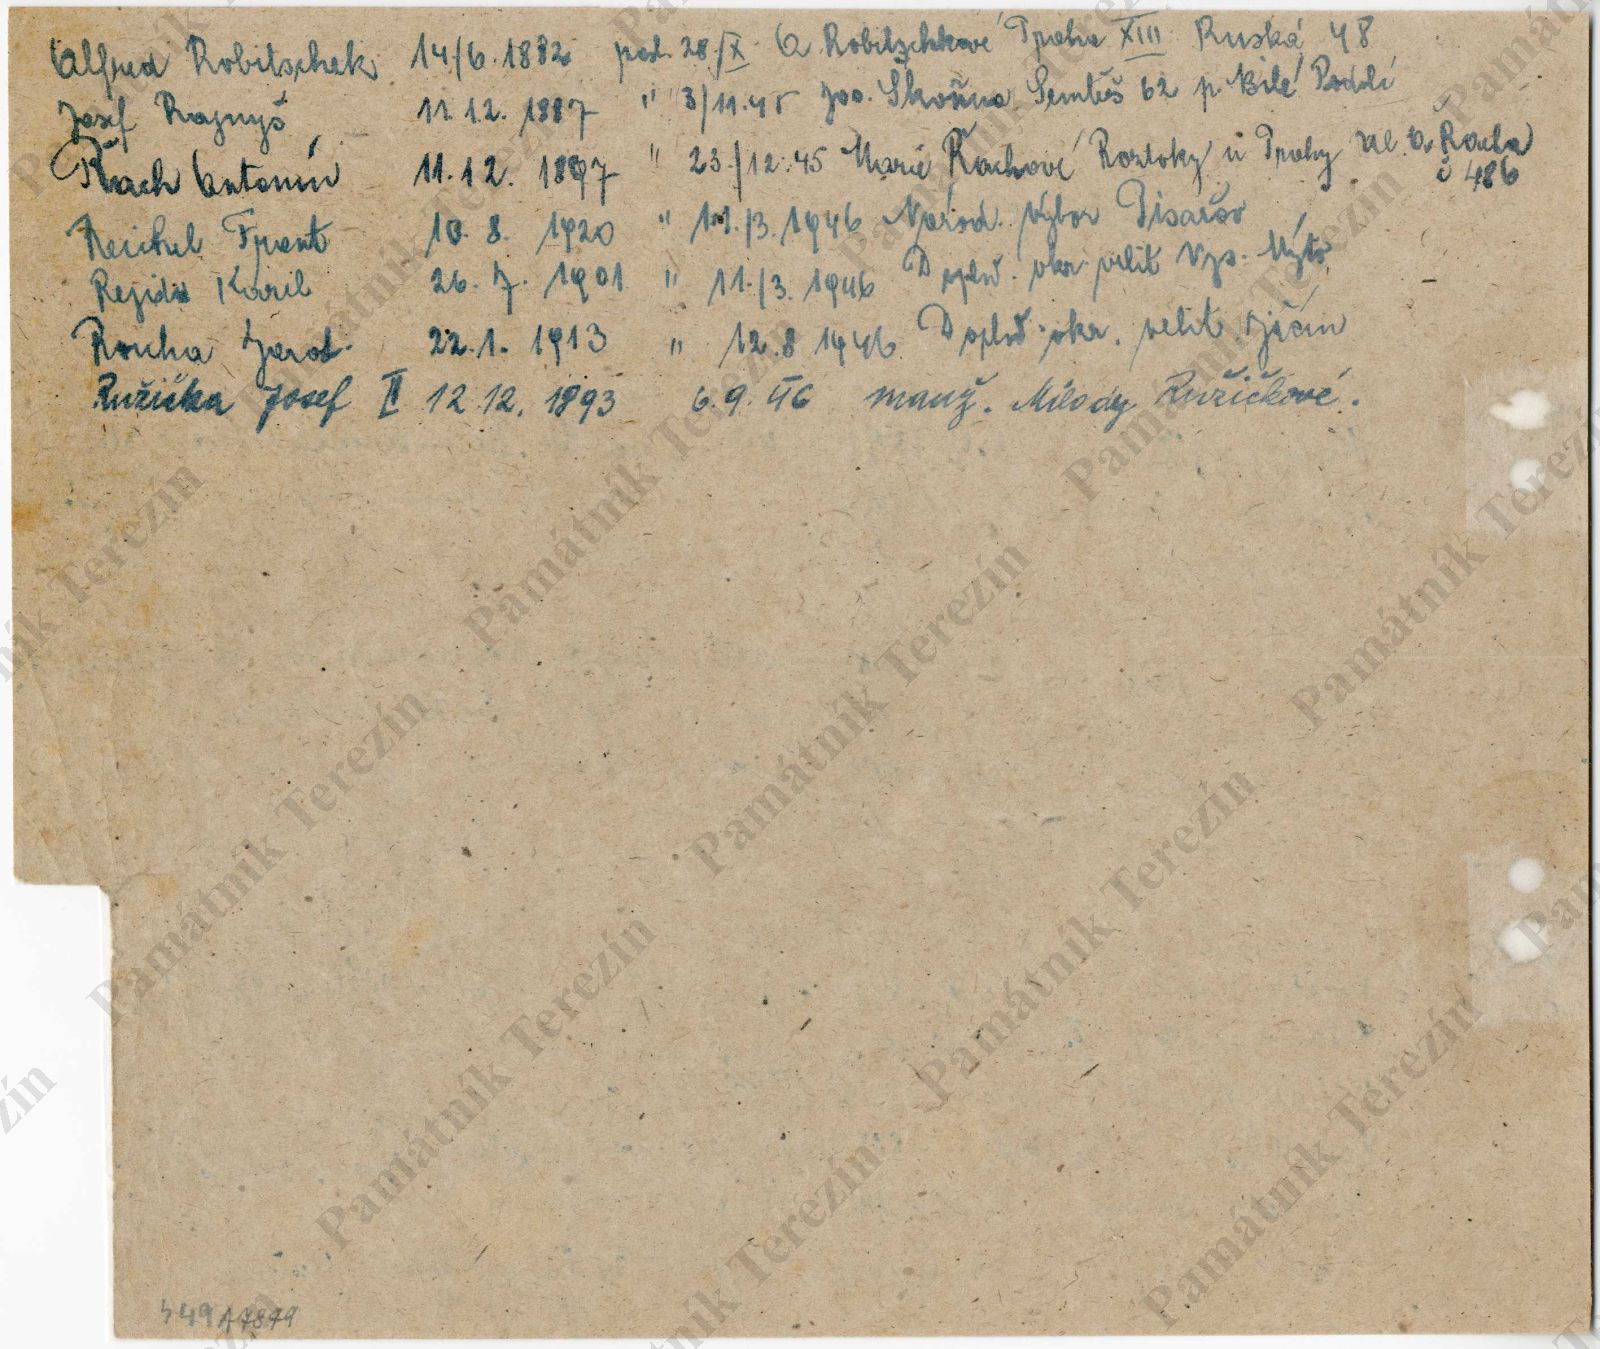 Alfred Robitschek 14/6.1882 pod. 28/X. A. Robitschkové Praha XIII Ruská 48
Josef Rajnyš 11.12.1887 " 3/11.45 Jos. Škoňna Semtěš 62 p. Bílé Podolí
Řach Antonín 11.12.1897 " 23./12.45 Marie Řachové Roztoky u Prahy ul. A. Řacha č 486
Reichel Frant 10.8.1920 " 11./3.1946 Národ. výbor Pisařov
Rejda Karel 26.7.1901 " 11./3.1946 Doplň. okr. velit. Vys. Mýto
Roucha Jarod. 22.1.1913 " 12.8 1946 Doplň. okr. velit. Jičín
Ružička Josef II 12.12.1893 6.9.46 manž. Milody Ružičkové.
449 A 7879
Památník Terezín